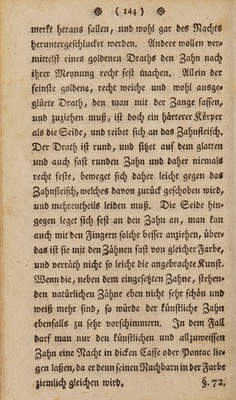 ( 144 )
merkt heraus fallen, und wohl gar des Nachts
heruntergeschlucket werden. Andere wollen ver-
mittelst eines goldenen Draths den Zahn nach
ihrer Meynung recht fest machen. Allein der
feinste goldens, recht weiche und wohl ausge-
glüete Drath, den man mit der Zange fassen,
und zuziehen muß, ist doch ein härterer Körper
als die Seide, und reibet sich an das Zahnfleisch.
Der Drath ist rund, und sitzet auf dem glatten
und auch fast runden Zahn und daher niemals
recht feste, beweget sich daher leicht gegen das
Zahnfleisch, welches davon zurück geschoben wird,
und mehrentheils leiden muß. Die Seide hin-
gegen leget sich fest an den Zahn an, man kan
auch mit den Fingern solche besser anziehen, über-
das ist sie mit den Zähnen fast von gleicher Farbe,
und verräth nicht so leicht die angebrachte Kunst.
Wenn die, neben dem eingesetzten Zahne, stehen-
den natürlichen Zähne eben nicht sehr schön und
weiß mehr sind, so würde der künstliche Zahn
ebenfalls zu sehr vorschimmern. In dem Fall
darf man nur den künstlichen und allzuweissen
Zahn eine Nacht in dicken Caffe oder Pontac lie-
gen laßen, da er denn seinen Nachbarn in der Farbe
ziemlich gleichen wird. §. 72.